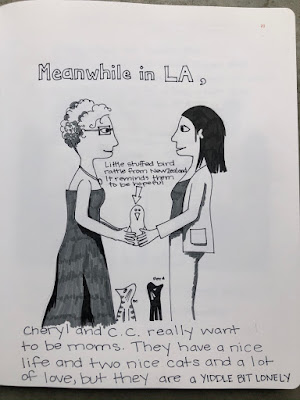 Meanwhile in LA,
Little stuffed bird
rattle from New Zealand
It reminds them
to be hopeful
Cheryl and C.C. really want
to be moms. They have a nice
life and two nice cats and a lot
of love, but they are a YIDDLE BIT LONELY